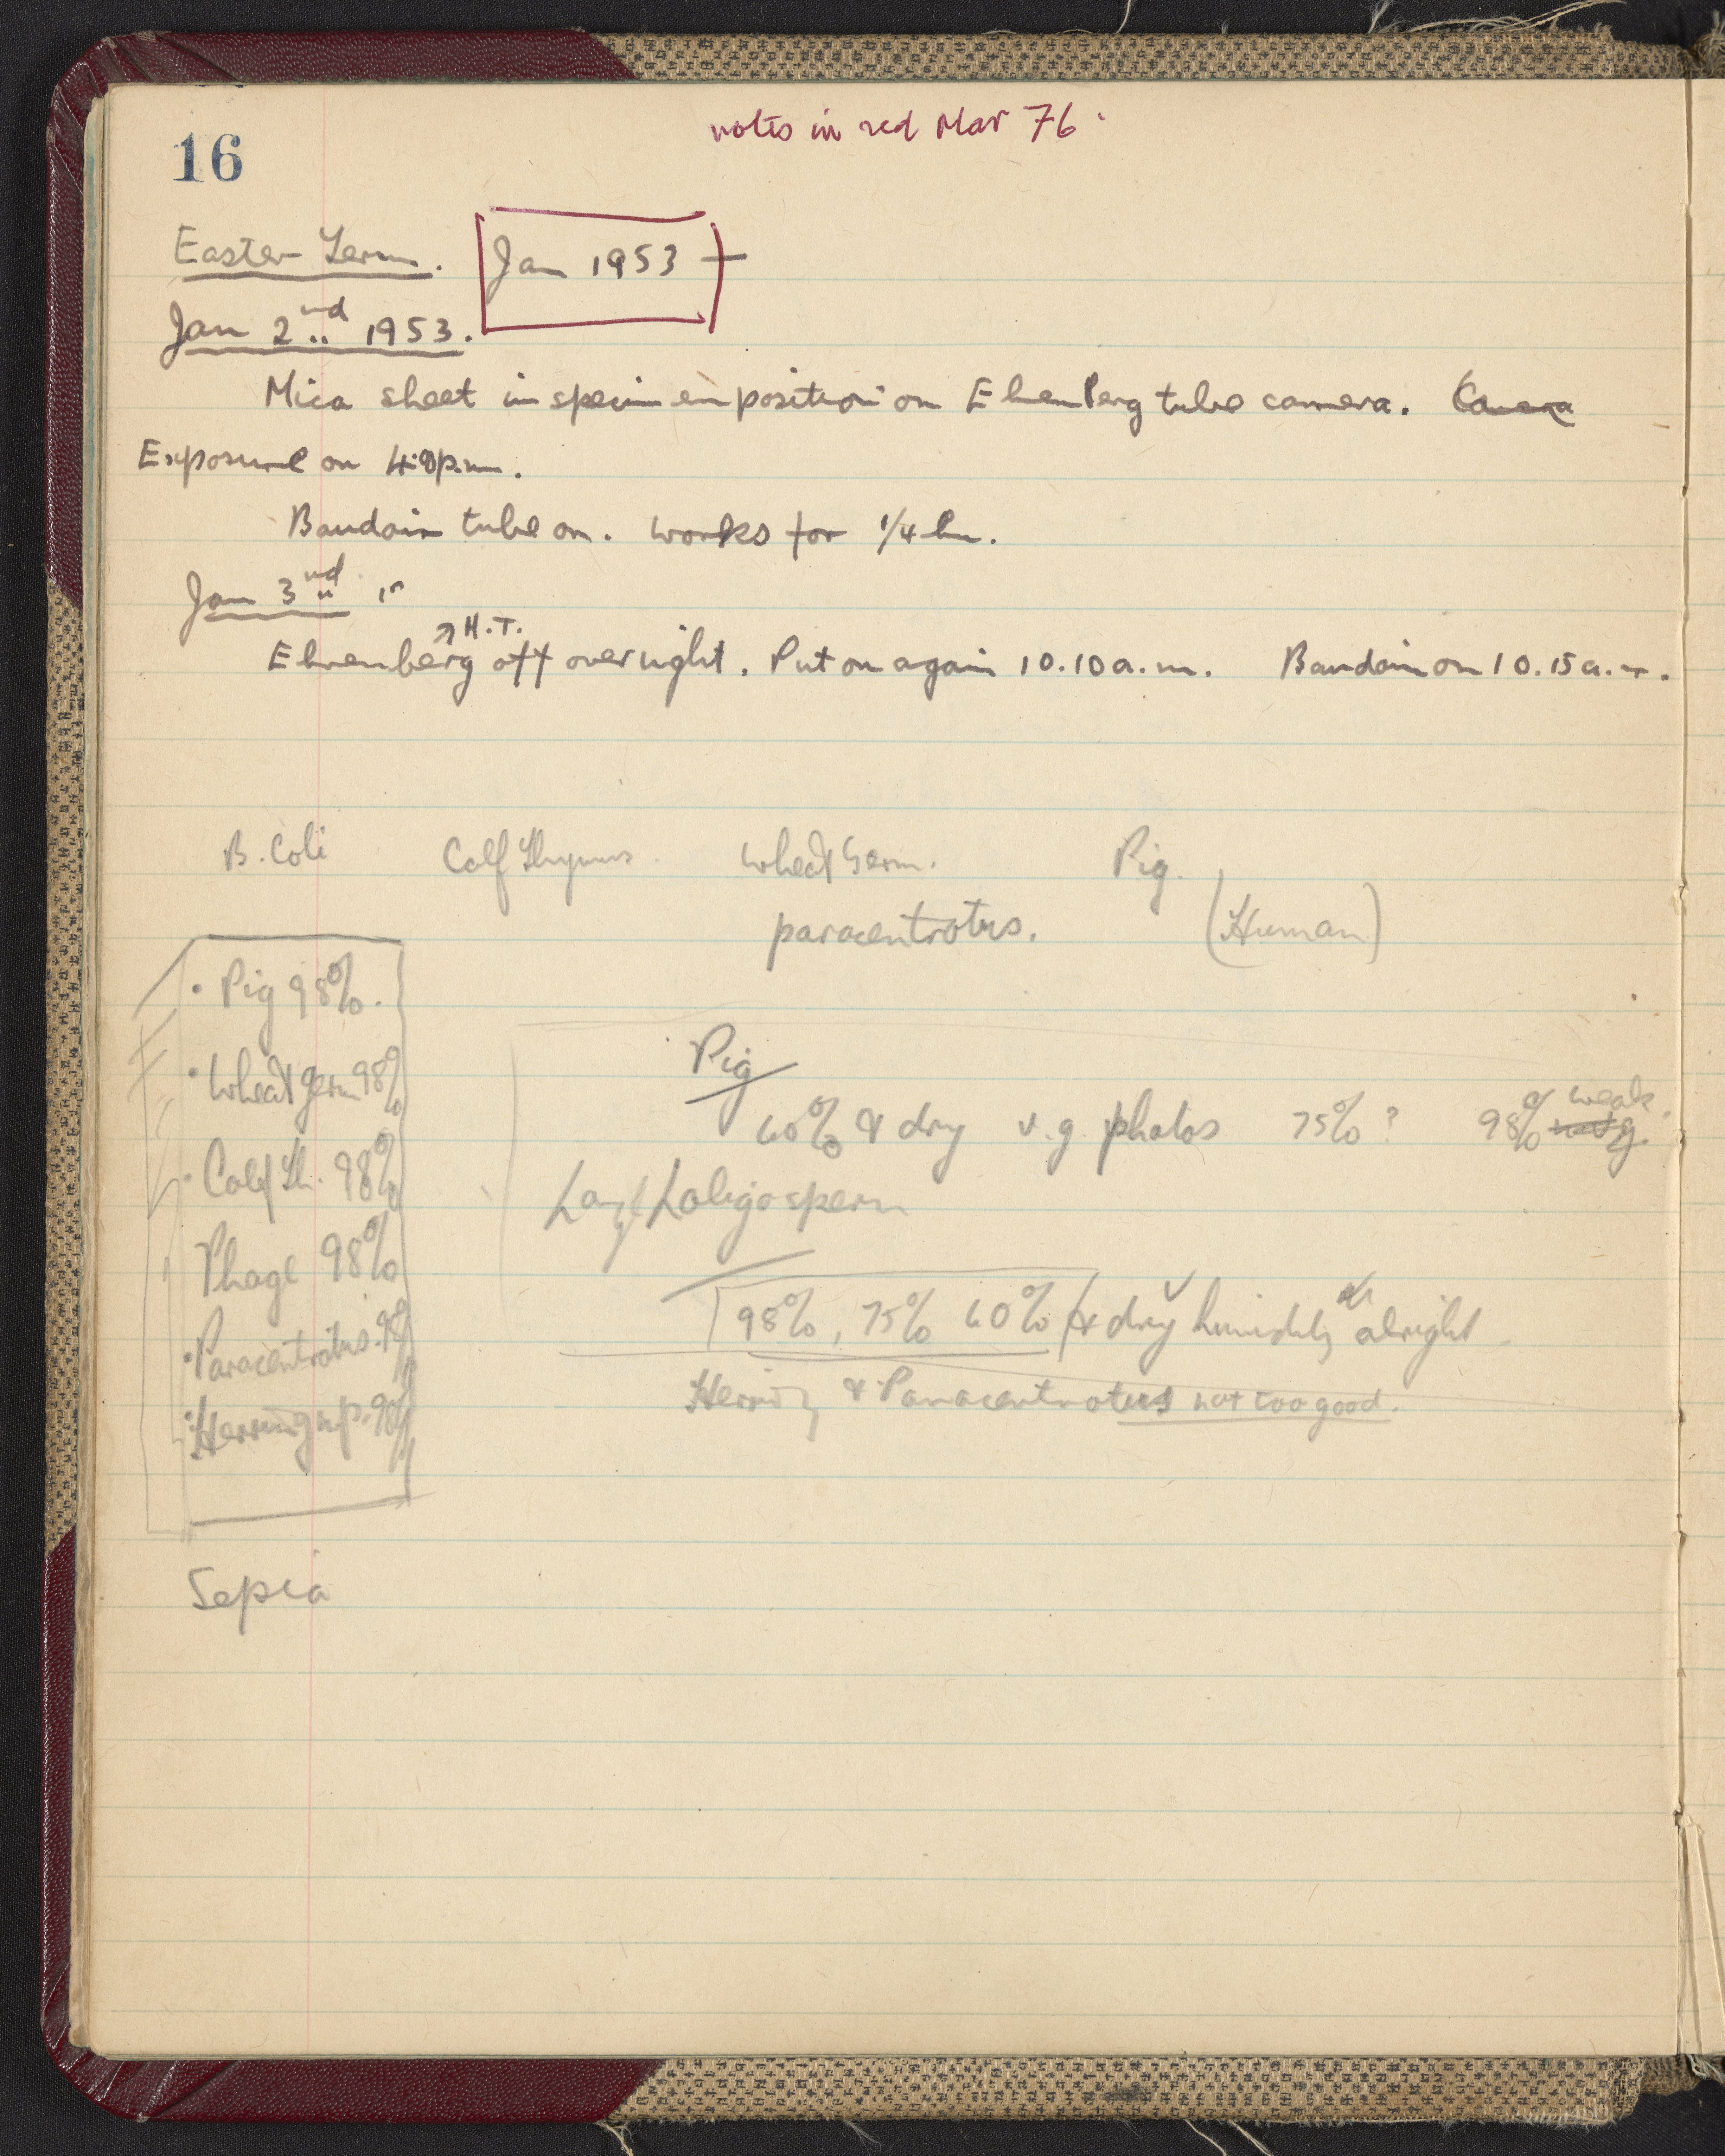 notes in red Mar 76.
16
Easter Term. Jan 1953
Jan 2nd 1953.
Mica sheet in specimen position on Ehrenberg tube camera. Camera
Exposure on p.m.
Baudoin tube on. works for 1/4 hr.
Jan 3nd
H.T.
Ehrenberg off overnight. Put on again 10.10 a.m. Baudoin on 10.15 a.m.
B. Coli Calf Thymus. Wheat Germ. Pig.
paracentrotus. (Human)
Pig 98%.
Wheat germ 98%
Calf Th. 98%
Phage 98%
Paracentrotus.
Herring sp. 98%
Sepia
Pig
60% & dry v.g. photos 75% ? 98% weak.
Loligo sperm
98%, 75% 60% & dry humidity alright
Herring & Paracentrotus not too good.